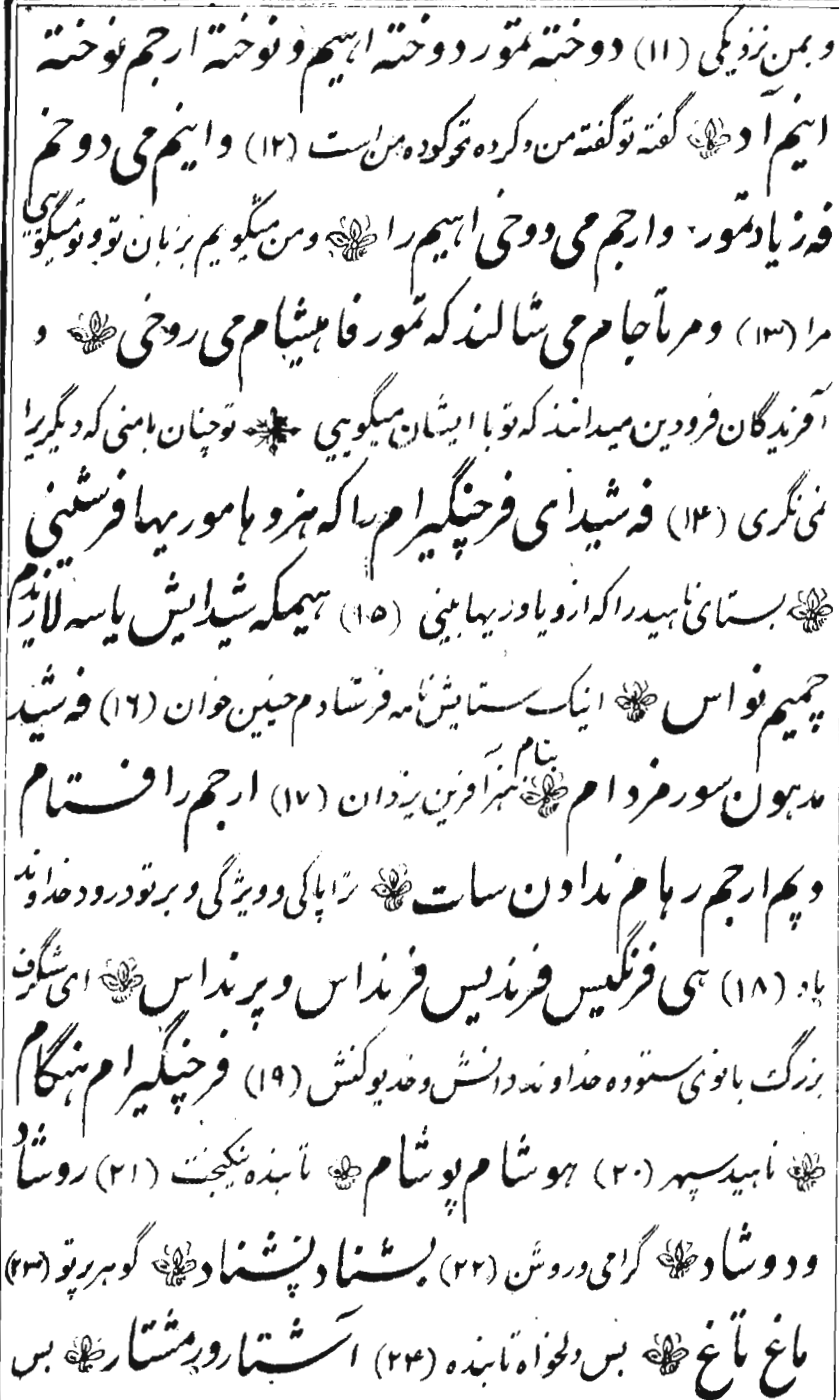 و بمن نزدیکی (۱۱) دوخته تمور دوخته اهیم و نوخته ارجم نوخته
اینم آد گفته تو گفته من و کرده تو کرده من است (۱۲) و اینم می دوخم
فه زیاد تمور و ارجم می دوخی اهیم را و من میگویم بزبان تو و تو میگویی
مرا (۱۳) و مرتاجام می شالند که تمور فا هیشام می روخی و
آفریدگان فرودین میدانند که تو با ایشان میگویی تو چنان بامنی که دیگریرا
نمی نگری (۱۴) فه شیدای فرجنگیرام را که هزو هاموریها فرسنی
بستای ناهید را که ازو یاوریها بینی (۱۵) هیمکه شیدایش یاسه لازیدم
چمیم نواس اینک ستایش نامه فرستادم چنین خوان (۱۶) فه شید
مدهون سور مزدام بنام هنر آفرین یزدان (۱۷) ارجم را فستام
و پم ارجم رهام نداون سات ترا پاکی و ویژگی و بر تو درود خداوند
باد (۱۸) هی فرنگیس فرندیس فرنداس و پرنداس ای شگرف
بزرگ بانوی ستوده خداوند دانش و خدیو کنش (۱۹) فرجنگیرام هنگام
ناهید سپهر (۲۰) هوشام پوشام تابنده نیکبخت (۲۱) روشاد
و دوشاد گرامی و روشن (۲۲) بشناد پشناد گوهر پرتو (۲۳)
ماغ تاغ بس دلخواه تابنده (۲۴) آشتار ورمشتار بس